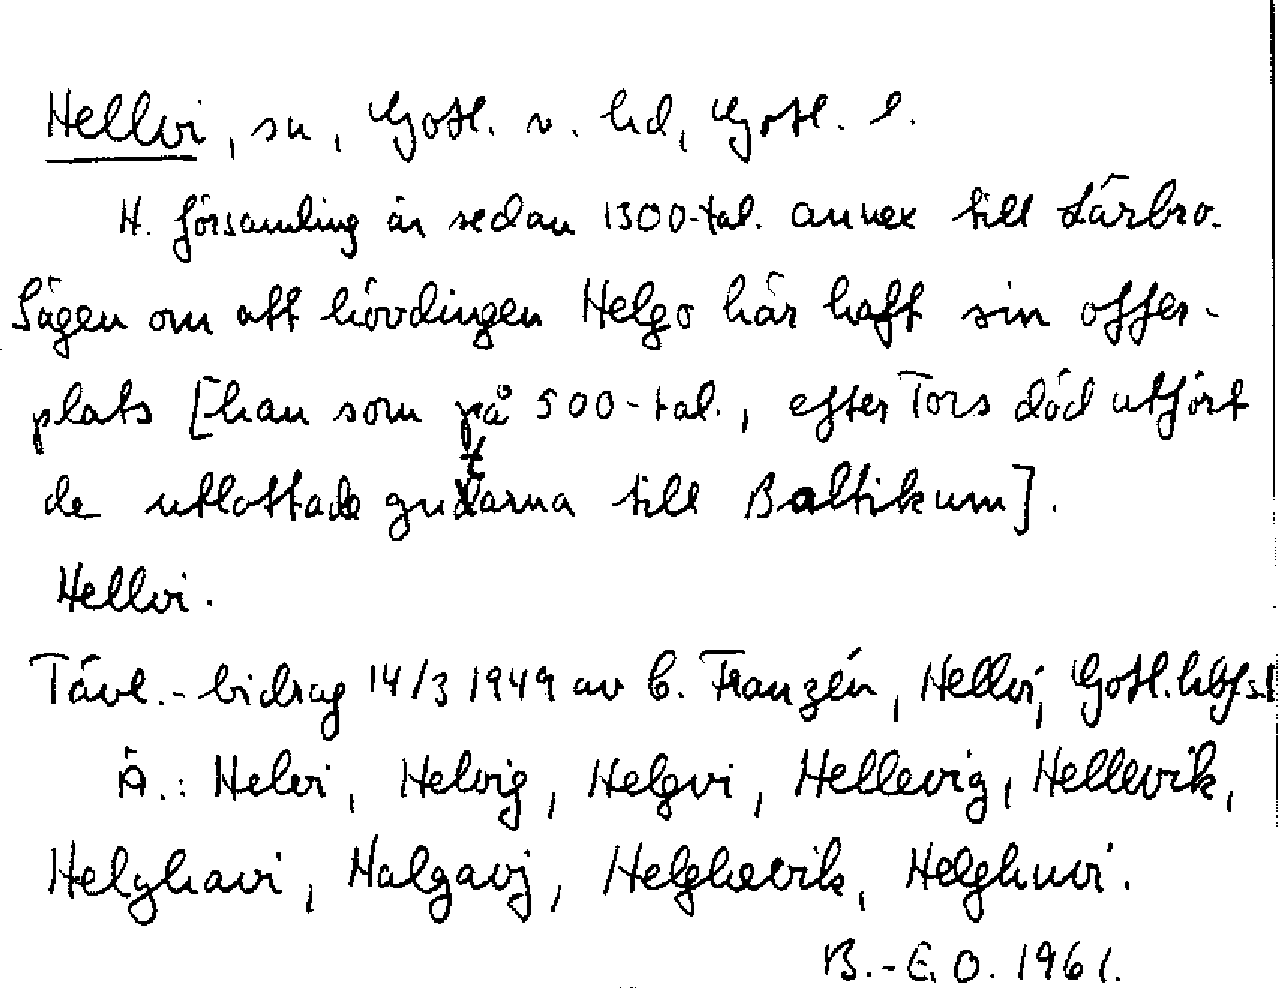 Hellvi, sn, Gotl. n. hd, Gotl. l.
H. församling är sedan 1300-tal. annex till Lärbro.
Sägen om att hövdingen Helgo här haft sin offer-
plats [han som på 500-tal., efter Tors död utfört
de utlottade gutarna till Baltikum].
Hellvi.
Tävl.-bidrag 14/3 1949 av B. Franzén, Hellvi, Gotl.
Ä.: Helvi, Helvig, Helgvi, Hellevig, Hellevik,
Helghavi, Halgavj, Helghevik, Helghuvi.
B.-E.O. 1961.